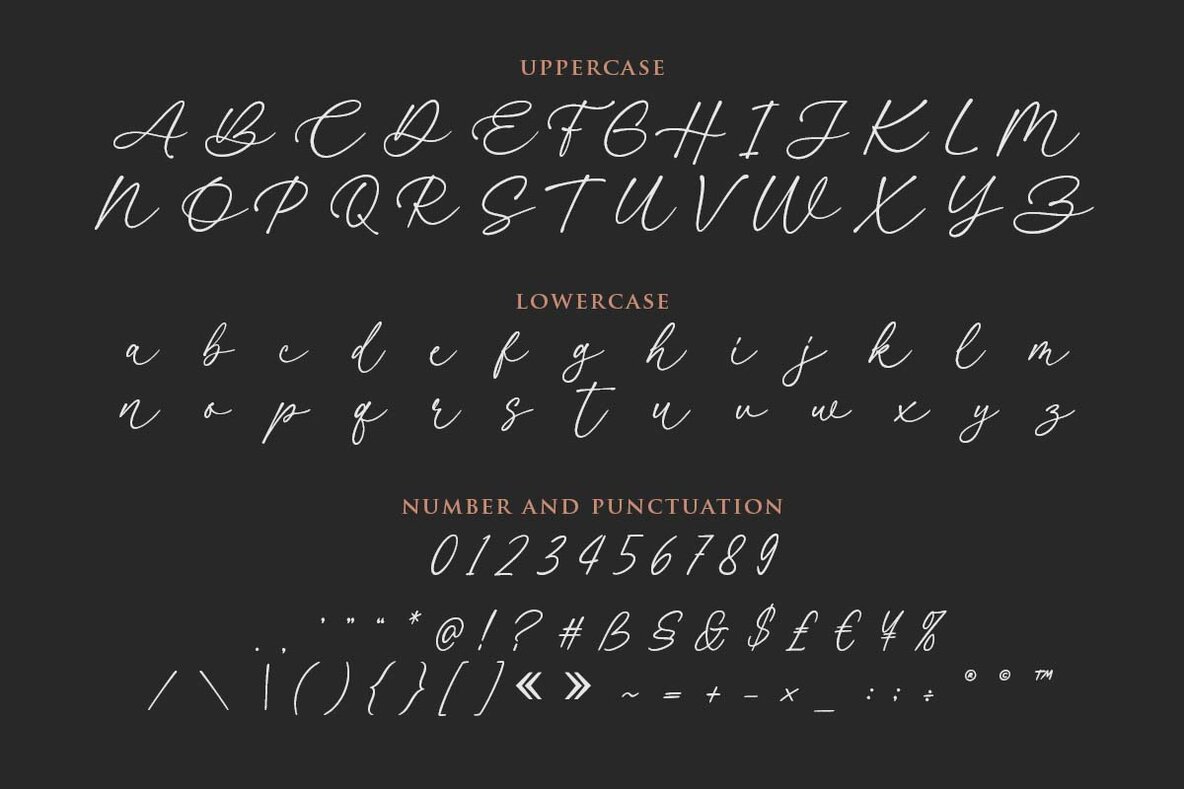 UPPERCASE
A B C D E F G H I J K L M
N O P Q R S T U V W X Y Z
LOWERCASE
a b c d e f g h i j k l m
n o p q r s t u v w x y z
NUMBER AND PUNCTUATION
0 1 2 3 4 5 6 7 8 9
. , ’ ” “ * @ ! ? # ß § & $ £ € ¥ %
/ \ | ( ) { } [ ] « » ~ = + – × _ : ; ÷ ® © ™